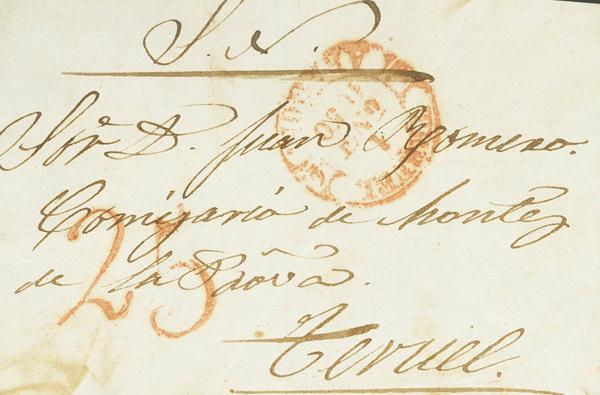 S. N.
Sor. D. Juan Romero.
Comisario de Montes
de la Prova.
Teruel.